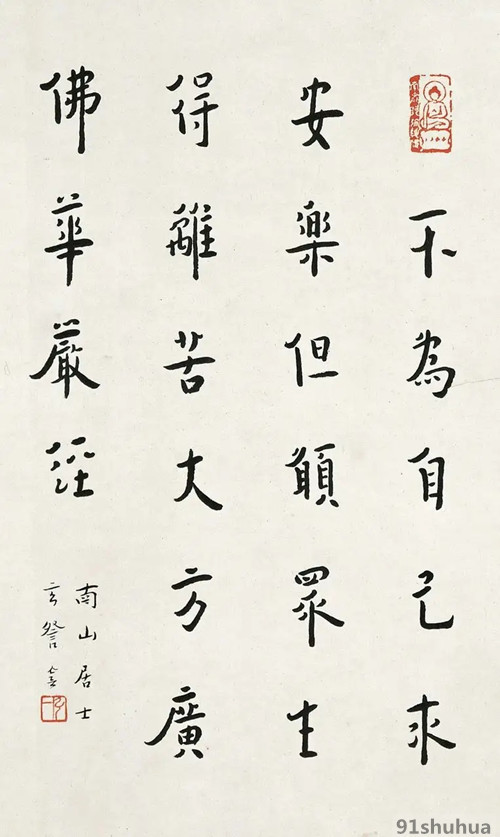 不為自己求
安樂但願眾生
得離苦大方廣
佛華嚴經
南山居士
91shuhua